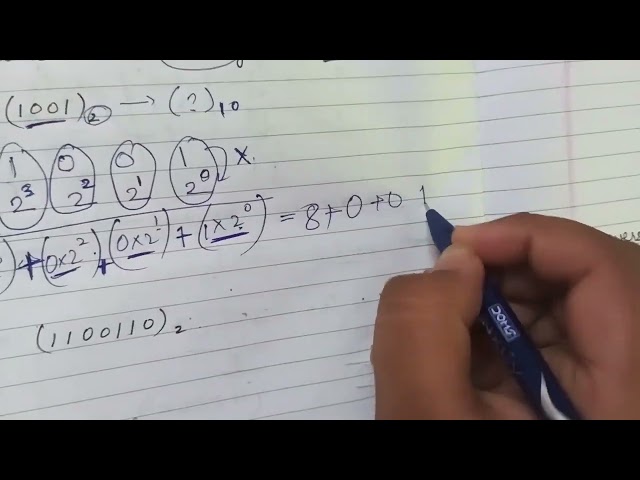 (1001)₂ → (?)₁₀
1 0 0 1 x.
2³ 2² 2¹ 2⁰
+ (0×2²) + (0×2¹) + (1×2⁰) = 8+0+0 1
(1100110)₂
DOMS